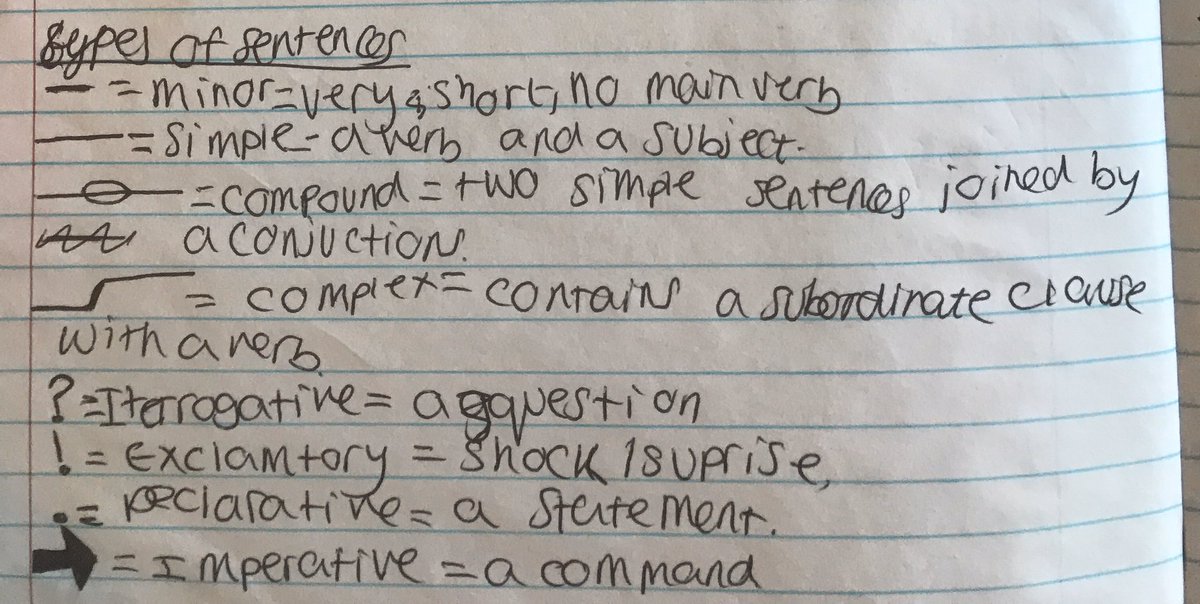 types of sentences
= minor = very short, no main verb
= simple - a verb and a subject.
= compound = two simple sentences joined by
a conjuction.
= complex = contains a subordinate clause
with a verb.
? = Iterrogative = a question
! = Exclamtory = shock / suprise,
. = Declarative = a statement.
➡ = Imperative = a command